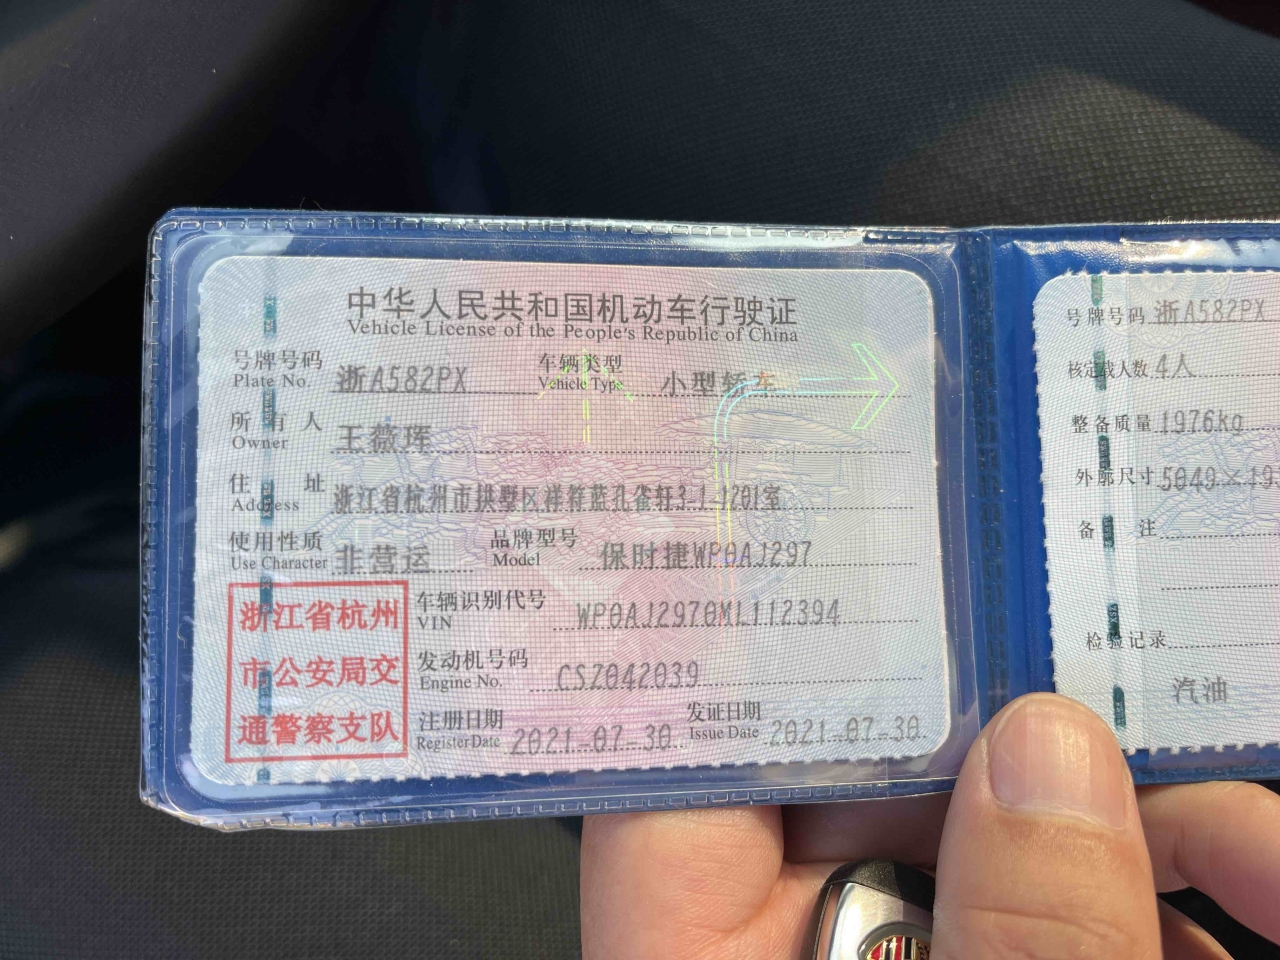 中华人民共和国机动车行驶证
Vehicle License of the People's Republic of China
号牌号码 浙A582PX 车辆类型 小型轿车
Plate No. Vehicle Type
所有人 王薇珲
Owner
住址 浙江省杭州市拱墅区祥符蓝孔雀轩3-1-1201室
Address
使用性质 非营运 品牌型号 保时捷WP0AJ297
Use Character Model
浙江省杭州
市公安局交
通警察支队
车辆识别代号 WP0AJ2970ML112394
VIN
发动机号码 CSZ042039
Engine No.
注册日期 2021-07-30 发证日期 2021-07-30
Register Date Issue Date
号牌号码 浙A582PX
核定载人数 4人
整备质量 1976kg
外廓尺寸 5049×19
备注
检验记录
汽油